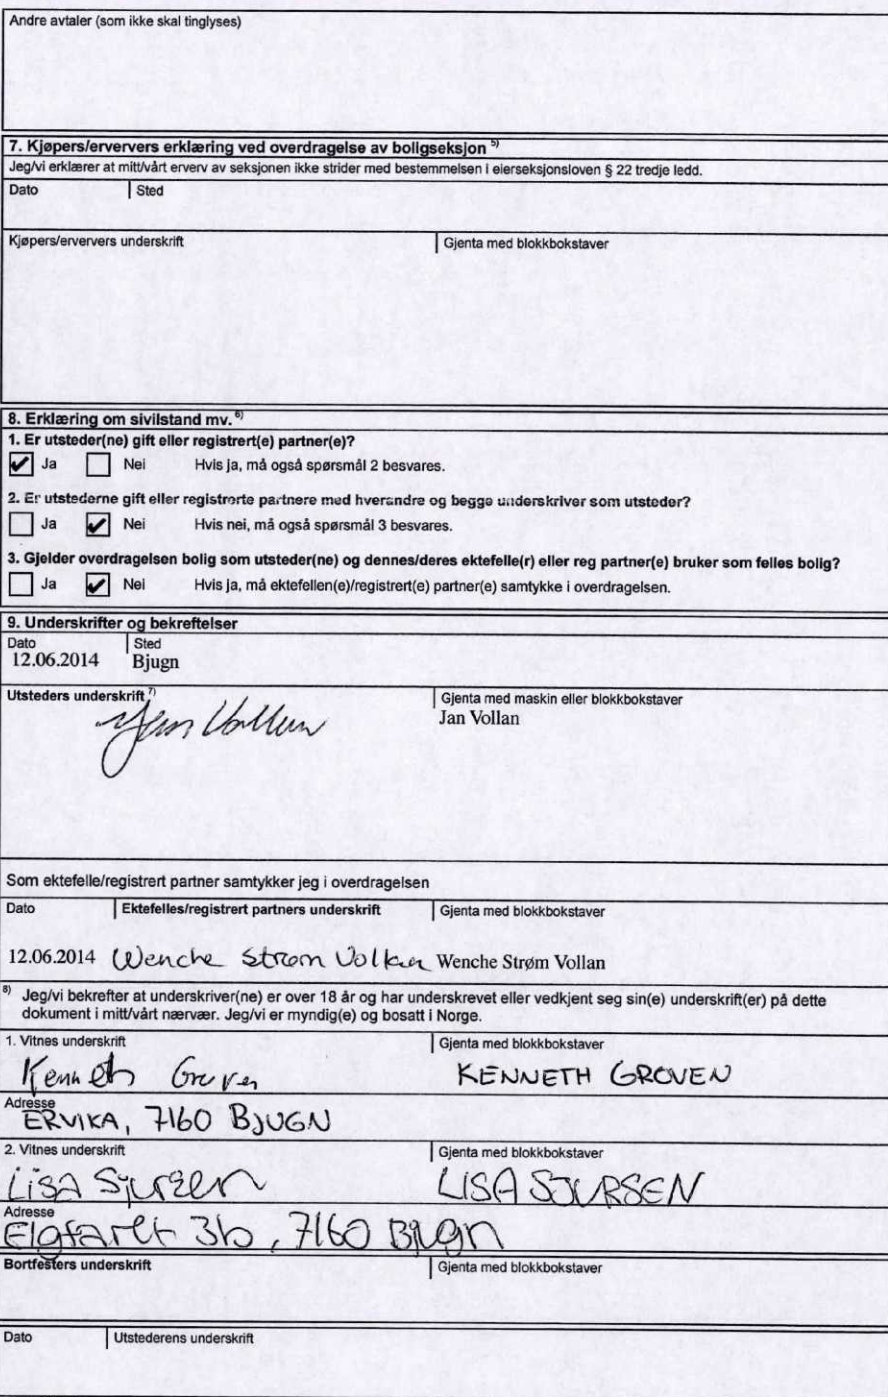 Andre avtaler (som ikke skal tinglyses)
7. Kjøpers/erververs erklæring ved overdragelse av boligseksjon 5)
Jeg/vi erklærer at mitt/vårt erverv av seksjonen ikke strider med bestemmelsen i eierseksjonsloven § 22 tredje ledd.
Dato Sted
Kjøpers/erververs underskrift Gjenta med blokkbokstaver
8. Erklæring om sivilstand mv. 6)
1. Er utsteder(ne) gift eller registrert(e) partner(e)?
Ja Nei Hvis ja, må også spørsmål 2 besvares.
2. Er utstederne gift eller registrerte partnere med hverandre og begge underskriver som utsteder?
Ja Nei Hvis nei, må også spørsmål 3 besvares.
3. Gjelder overdragelsen bolig som utsteder(ne) og dennes/deres ektefelle(r) eller reg partner(e) bruker som felles bolig?
Ja Nei Hvis ja, må ektefellen(e)/registrert(e) partner(e) samtykke i overdragelsen.
9. Underskrifter og bekreftelser
Dato Sted
12.06.2014 Bjugn
Utsteders underskrift 7) Gjenta med maskin eller blokkbokstaver
Jan Vollan Jan Vollan
Som ektefelle/registrert partner samtykker jeg i overdragelsen
Dato Ektefelles/registrert partners underskrift Gjenta med blokkbokstaver
12.06.2014 Wenche Strøm Vollan Wenche Strøm Vollan
8) Jeg/vi bekrefter at underskriver(ne) er over 18 år og har underskrevet eller vedkjent seg sin(e) underskrift(er) på dette
dokument i mitt/vårt nærvær. Jeg/vi er myndig(e) og bosatt i Norge.
1. Vitnes underskrift Gjenta med blokkbokstaver
Kenneth Groven KENNETH GROVEN
Adresse
ERVIKA, 7160 BJUGN
2. Vitnes underskrift Gjenta med blokkbokstaver
Lisa Sjursen LISA SJURSEN
Adresse
Elgfaret 3b, 7160 Bjugn
Bortfesters underskrift Gjenta med blokkbokstaver
Dato Utstederens underskrift